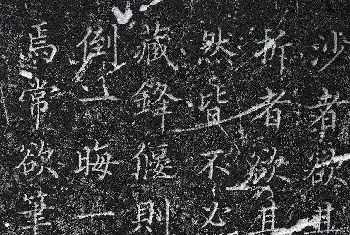 沙者欲其
拆者欲其
然皆不必
藏鋒偃則
倒一晦一
焉常欲筆